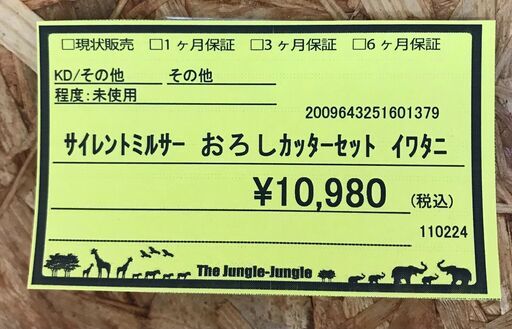 □現状販売 □1ヶ月保証 □3ヶ月保証 □6ヶ月保証
KD/その他 その他
程度:未使用
2009643251601379
サイレントミルサー おろしカッターセット イワタニ
¥10,980 (税込)
110224
The Jungle-Jungle